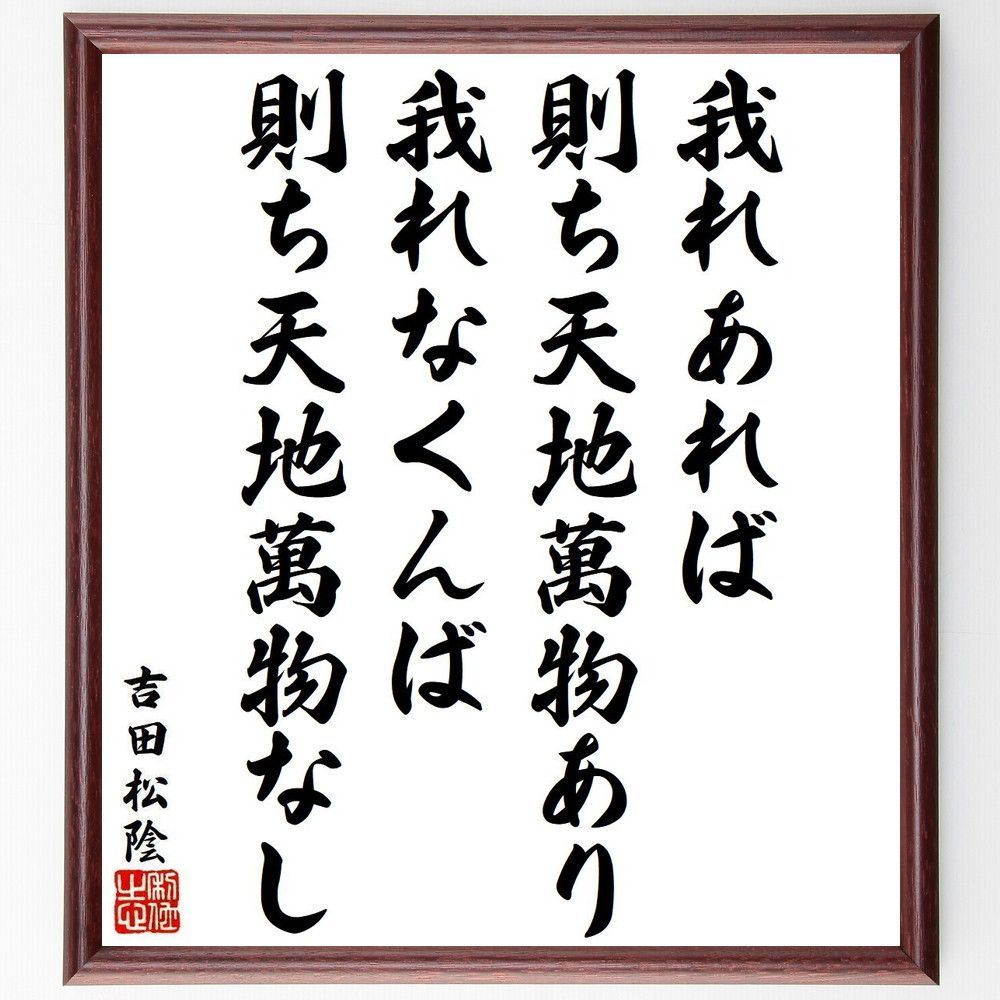 我れあれば
則ち天地萬物あり
我れなくんば
則ち天地萬物なし
吉田松陰